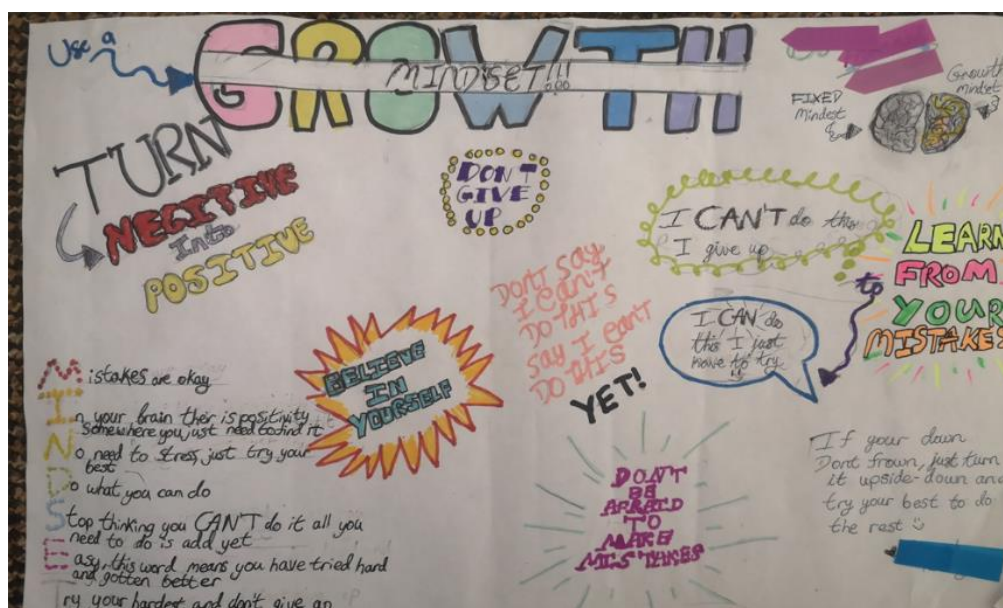 Use a
GROWTH
MINDSET!!!
FIXED
Mindest
Growth
Mindset
TURN
NEGITIVE
Into
POSITIVE
DON'T
GIVE
UP
I CAN'T do this
I give up
to
I CAN do
this I just
have to try
LEARN
FROM
YOUR
MISTAKES
DONT SAY
I Can't
DO THIS
Say I can't
DO THIS
YET!
BELIEVE
IN
YOURSELF
Mistakes are okay
In your brain their is positivity
Somewhere you just need to find it
No need to stress, just try your
best
Do what you can do
Stop thinking you CAN'T do it all you
need to do is add yet
Easy, this word means you have tried hard
and gotten better
ry your hardest and don't give
DON'T
BE
AFRAID
TO
MAKE
MISTAKES
If your down
Dont frown, just turn
it upside-down and
try your best to do
the rest